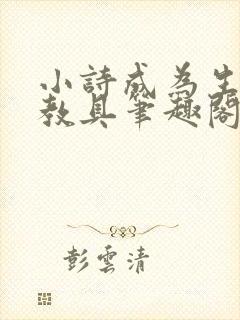 小詩成為生
教具筆趣閣
彭雲清